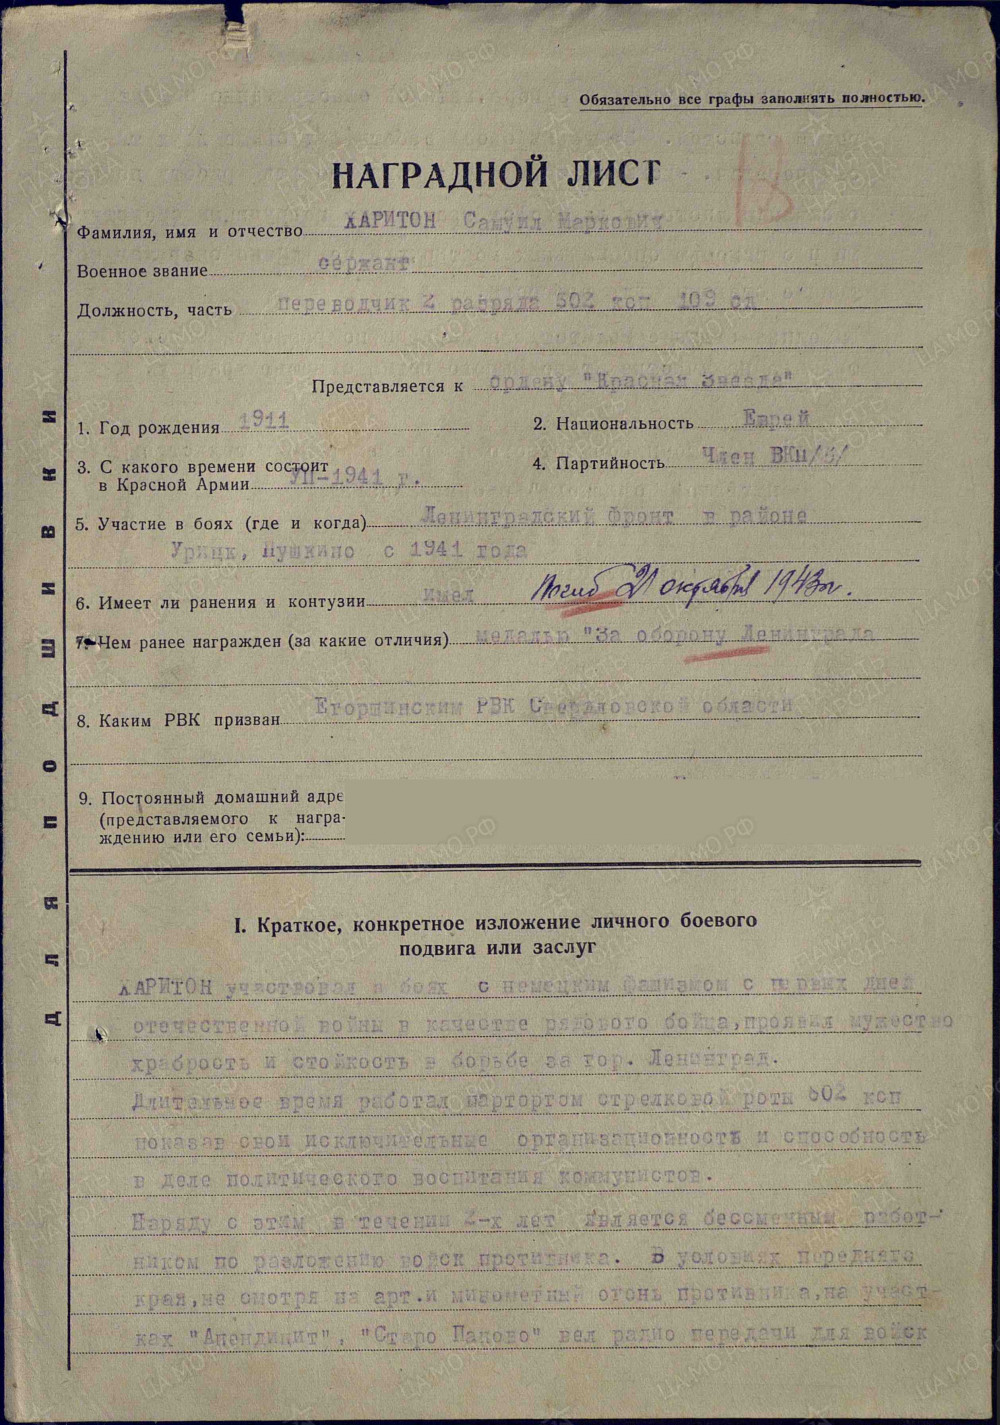 Обязательно все графы заполнять полностью.
НАГРАДНОЙ ЛИСТ
Фамилия, имя и отчество ХАРИТОН Самуил Маркович
Военное звание сержант
Должность, часть переводчик 2 разряда 502 ксп 109 сд
Представляется к ордену "Красная Звезда"
1. Год рождения 1911
2. Национальность Еврей
3. С какого времени состоит
в Красной Армии УП-1941 г.
4. Партийность Член ВКП/б/
5. Участие в боях (где и когда) Ленинградский фронт в районе
Урицк, Пушкино с 1941 года
6. Имеет ли ранения и контузии имел Погиб 21 октября 1943 г.
7. Чем ранее награжден (за какие отличия) медалью "За оборону Ленинграда
8. Каким РВК призван Егоршинским РВК Свердловской области
9. Постоянный домашний адре
(представляемого к награ-
ждению или его семьи):
I. Краткое, конкретное изложение личного боевого
подвига или заслуг
ХАРИТОН участвовал в боях с немецким фашизмом с первых дней
отечественной войны в качестве рядового бойца,проявил мужество
храбрость и стойкость в борьбе за гор. Ленинград.
Длительное время работал парторгом стрелковой роты 602 ксп
показав свои исключительные организационность и способность
в деле политического воспитания коммунистов.
Наряду с этим в течении 2-х лет является бессменным работ-
ником по разложению войск противника. В условиях переднего
края,не смотря на арт.и минометный огонь противника,на участ-
ках "Апендицит", "Старо Паново" вел радио передачи для войск
ДЛЯ ПОДШИВКИ